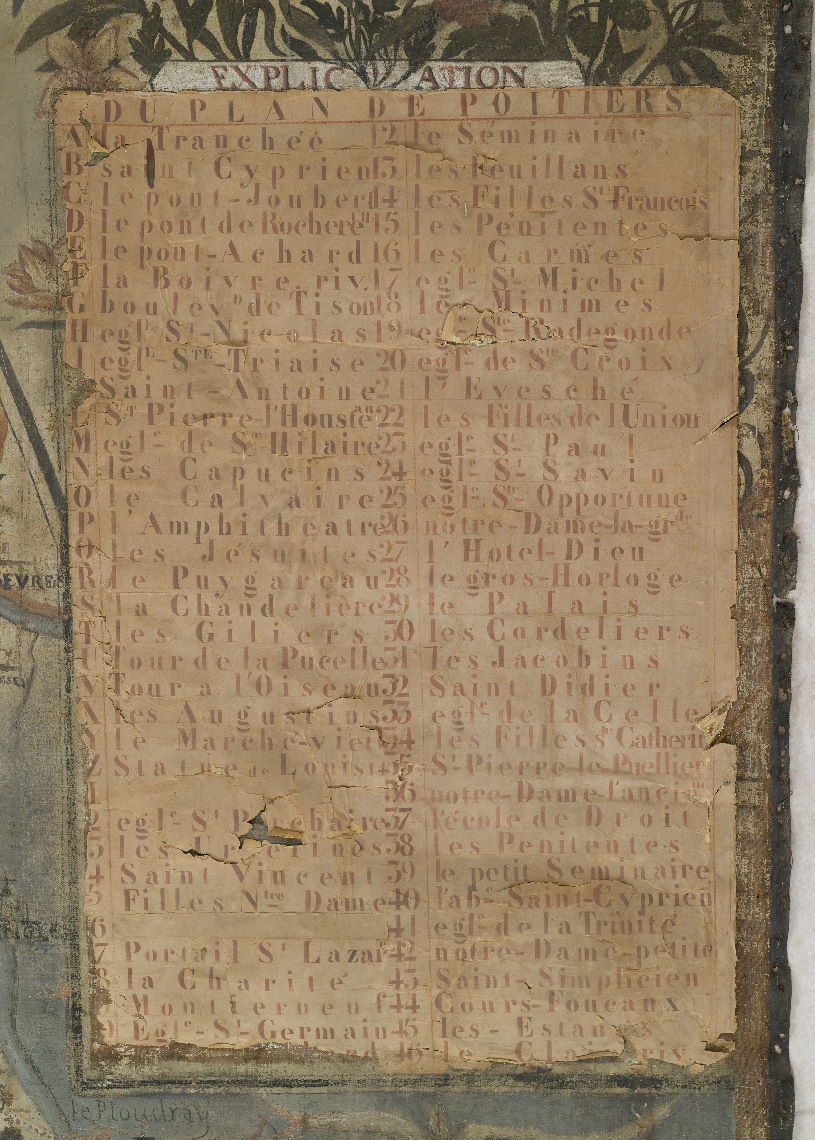 EXPLICATION
DU PLAN DE POITIERS
A la Tranchée 12 le Séminaire
B saint Cyprien 13 les feuillans
C le pont-Joubert 14 les Filles St François
D le pont de Rochereuil 15 les Pénitentes
E le pont-Achard 16 les Carmes
F la Boivre riv. 17 egle St Michel
G boulevd de Tison 18 les Minimes
H egle ST-Nicolas 19 egle Ste Radegonde
I egle STE-Triaise 20 egle de Ste Croix
Saint-Antoine 21 l'Evesché
L ST Pierre-l'Houstau 22 les Filles de l'Union
M egle de St Hilaire 23 egle St Paul
N les Capucins 24 egle St Savin
O le Calvaire 25 egle Ste Opportune
P l'Amphitheatre 26 notre-Dame-la-grde
Q Les Jésuites 27 l'Hotel-Dieu
R le Puygareau 28 le gros-Horloge
S la Chandelière 29 le Palais
T les Giliers 30 les Cordeliers
U Tour de la Pucelle 31 les Jacobins
V Tour a l'Oiseau 32 Saint Didier
X les Augustins 33 egle de la Celle
Y le Marché-vieil 34 les Filles Ste Catherin
Z Statue de Louis 35 St Pierre-le-Puellier
1 36 notre-Dame-l'ancie
2 egle St Porchaire 37 l'école de Droit
3 les Urselines 38 les Penitentes
4 Saint Vincent 39 le petit Seminaire
5 Filles Ntre Dame 40 l'abe Saint-Cyprien
6 41 egle de la Trinité
7 Portail St Lazar 42 notre-Dame-petite
8 la Charité 43 Saint-Simplicien
Montierneuf 44 Cours-Foucaux
Egle-St-Germain 45 les-Estangs
46 le Clain riv.
le Ploudray